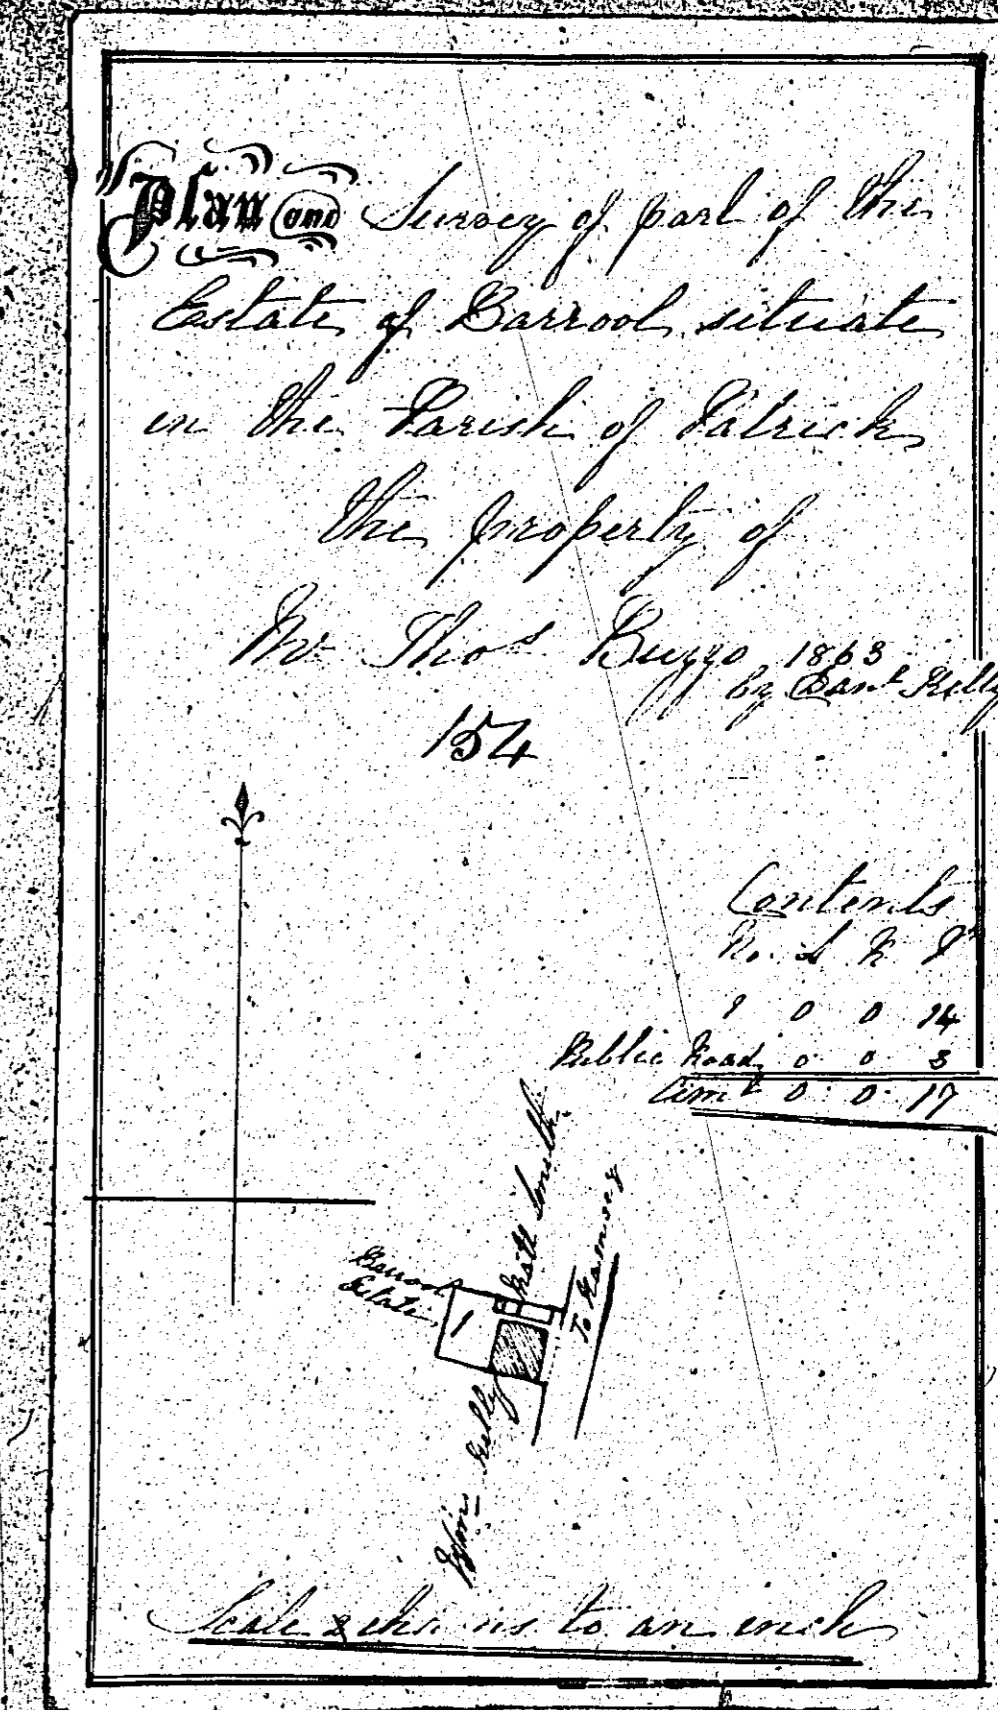 Plan and Survey of part of the
Estate of Barrool situate
in the Parish of Patrick
the property of
Mr Thos Buzzo 1863
by Danl Kelly
154
Contents
No. A R P
1 0 0 14
Public Road 0 0 3
Amt 0 0 17
Matt Smith
To Ramsey
Barrool
Estate
1
Kelly
Scale 2 chains to an inch